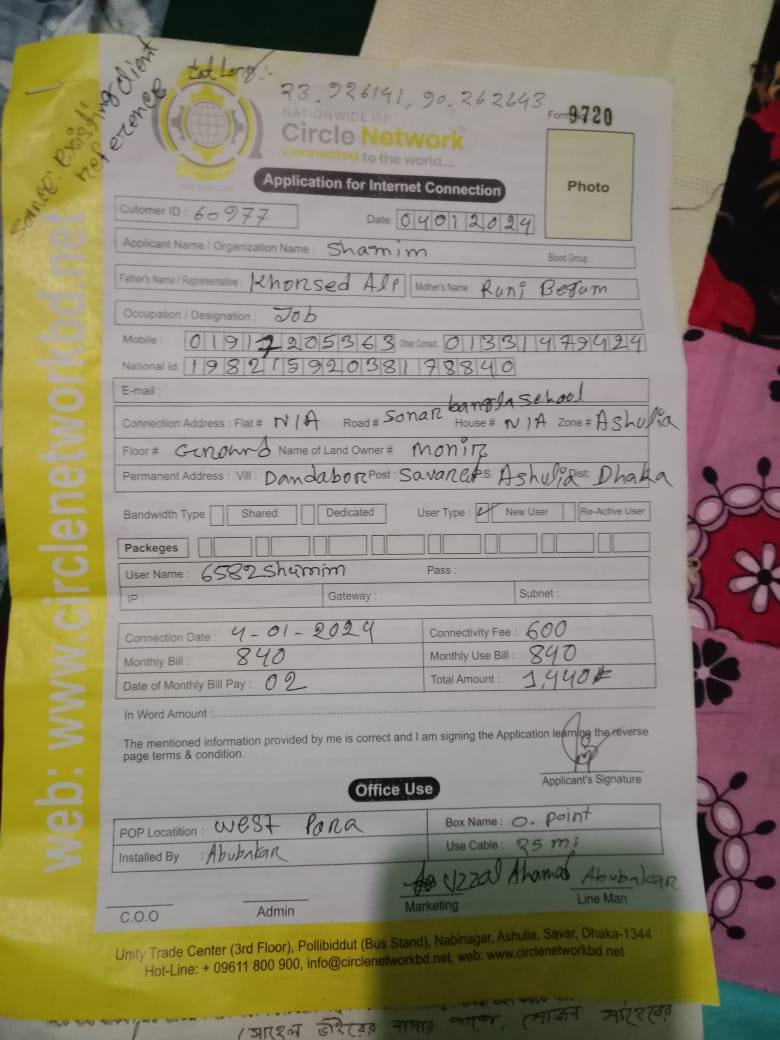 Source: existing client
reference
Lat Long:-
23.926141, 90.262643
NATIONWIDE ISP
Form 9720
Circle Network
Connected to the world....
Application for Internet Connection
Photo
Cutomer ID : 60977
Date: 04012024
Applicant Name / Organization Name : Shamim
Blood Group :
Father's Name / Representative : Khorsed Alp Mother's Name : Runi Begum
Occupation / Designation : Job
Mobile : 01917205363 Other Contact: 01331479424
National Id: 19821592038178840
E-mail :
Connection Address : Flat # N/A Road # Sonar bangla school House # N/A Zone # Ashulia
Floor # Ground Name of Land Owner # Monir
Permanent Address : Vill : Dandabor Post : Savar P.S. Ashulia Dist: Dhaka
Bandwidth Type Shared Dedicated User Type : New User Re-Active User
Packeges
User Name : 6582shamim Pass :
IP : Gateway : Subnet :
Connection Date : 4-01-2024 Connectivity Fee : 600
Monthly Bill : 840 Monthly Use Bill : 840
Date of Monthly Bill Pay : 02 Total Amount : 1,440
In Word Amount :
The mentioned information provided by me is correct and I am signing the Application learning the reverse
page terms & condition.
Applicant's Signature
Office Use
POP Locatition : West Para Box Name : 0. point
Installed By : Abubakar Use Cable : 25 mi
Uzzal Ahamad Abubakar
C.O.O Admin Marketing Line Man
Unity Trade Center (3rd Floor), Pollibiddut (Bus Stand), Nabinagar, Ashulia, Savar, Dhaka-1344
Hot-Line: + 09611 800 900, info@circlenetworkbd.net, web: www.circlenetworkbd.net
web: www.circlenetworkbd.net